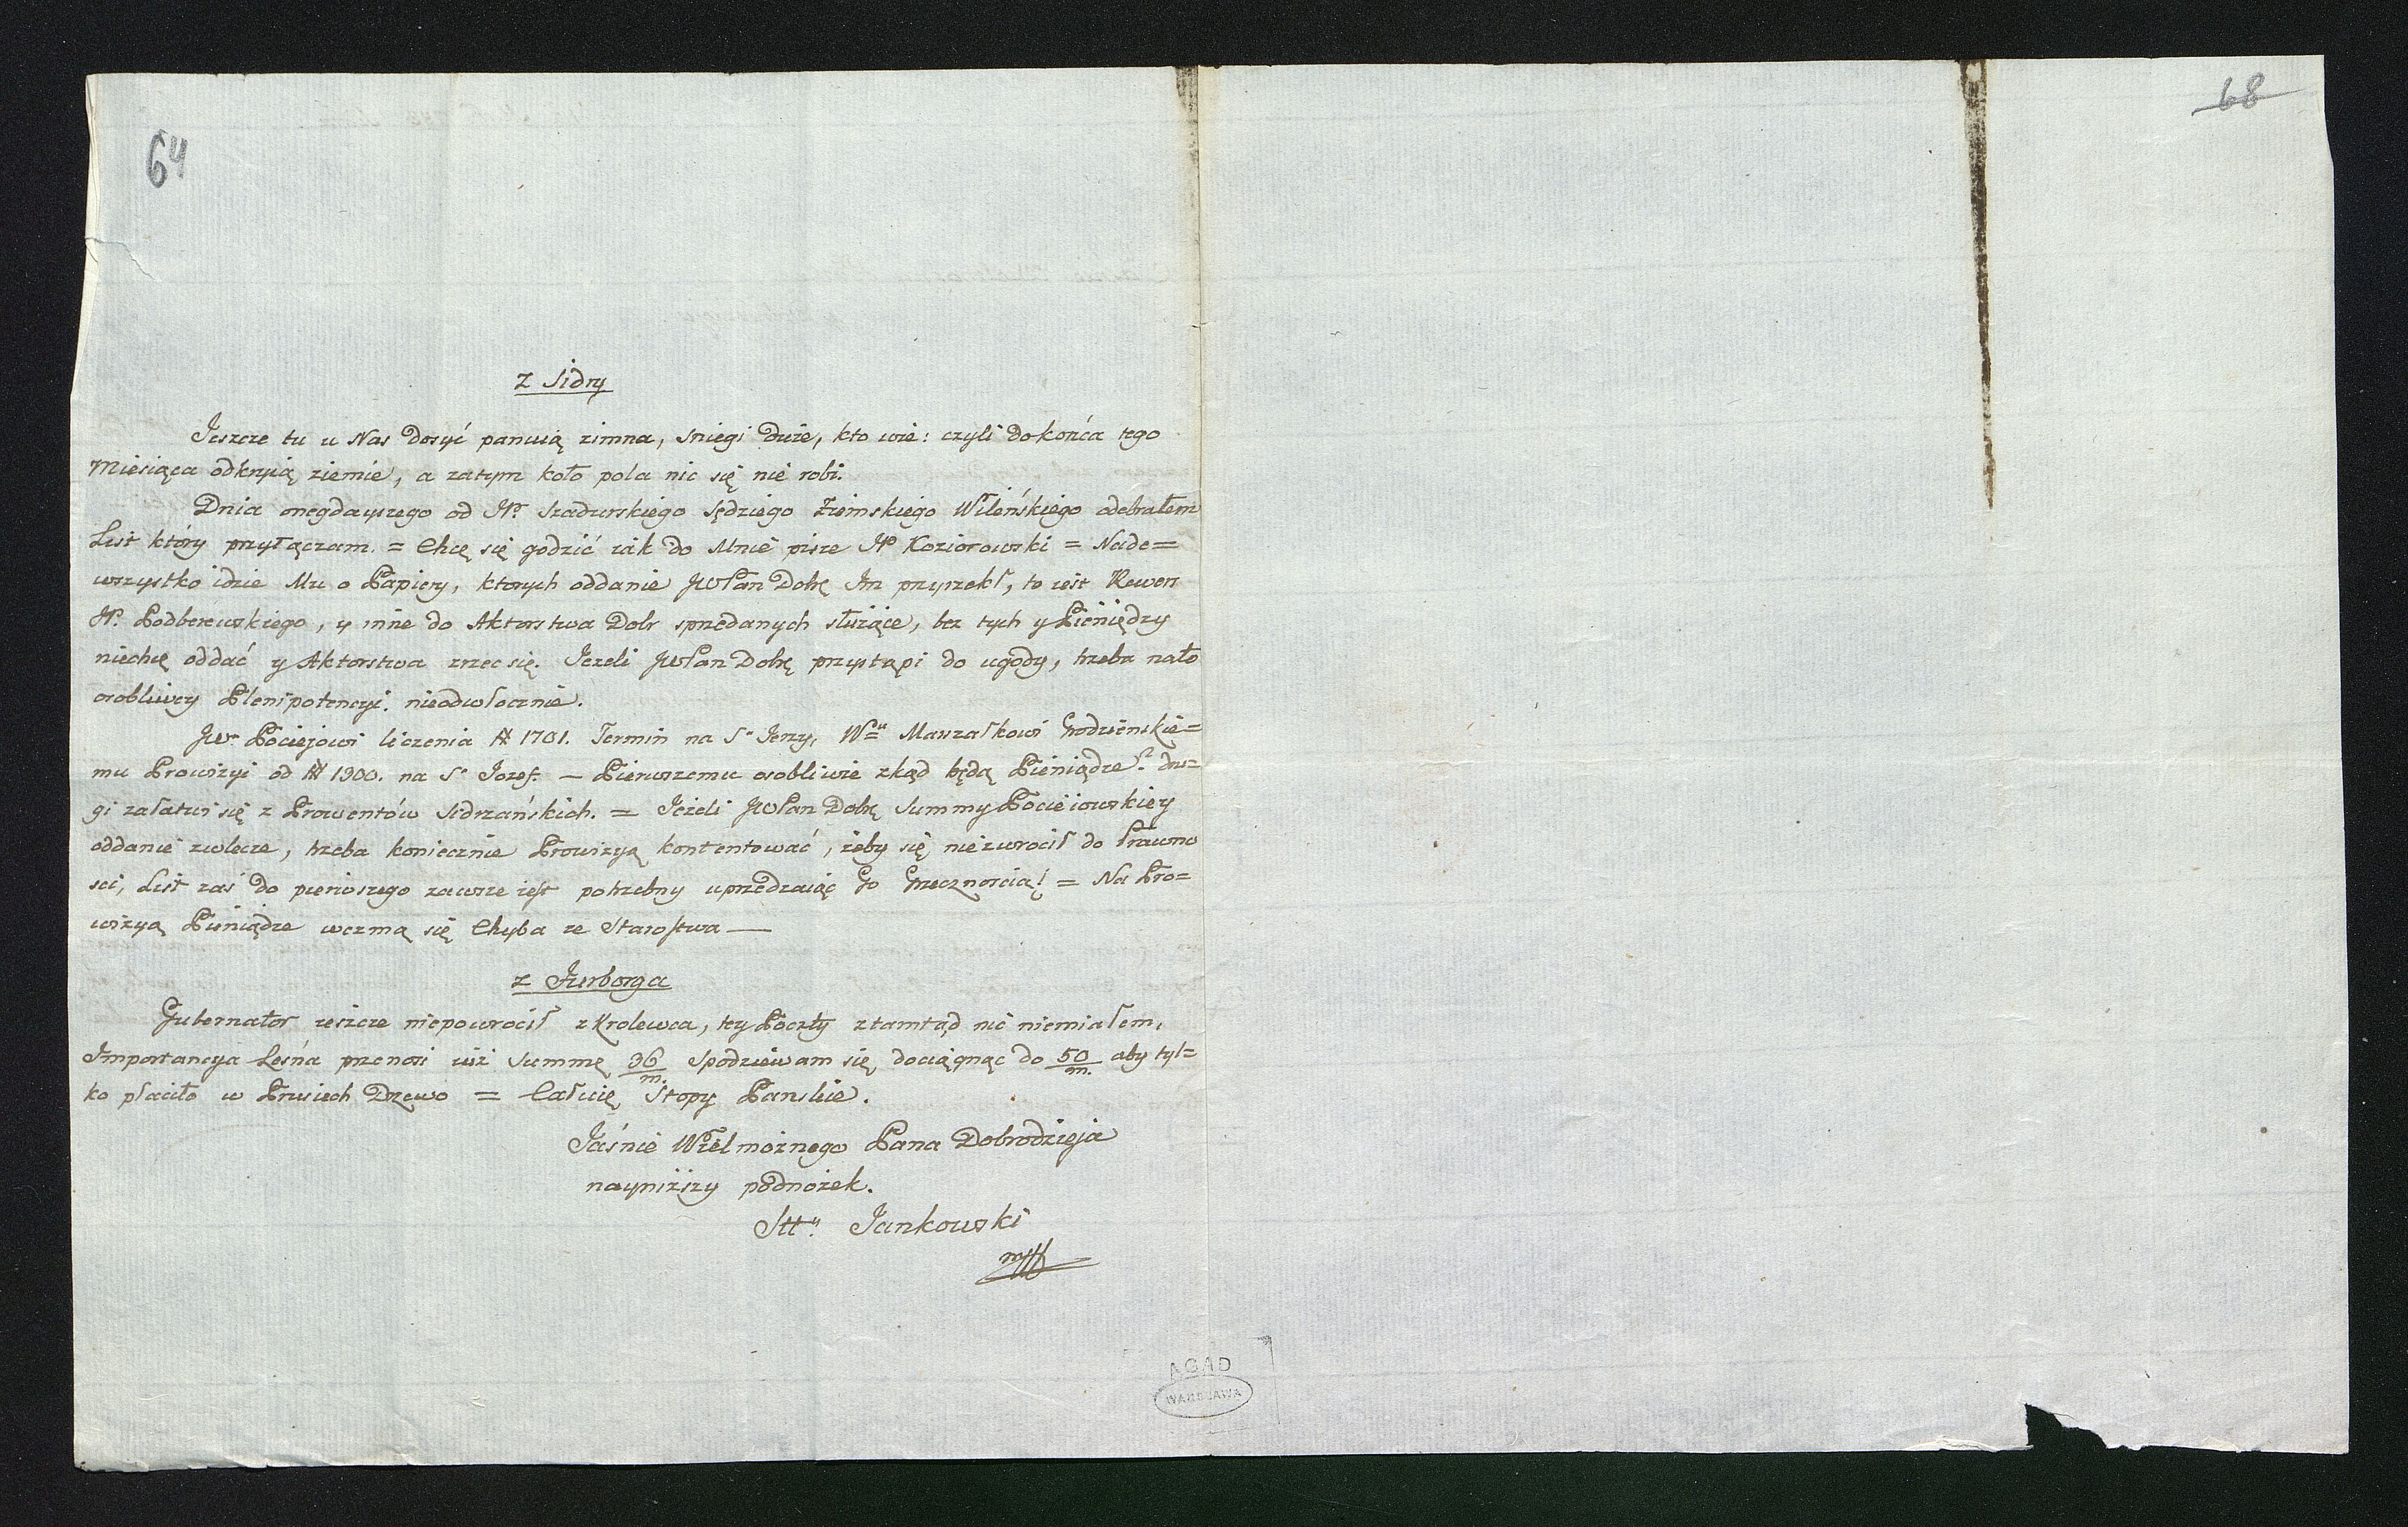 68
64
z Sidry
Jeszcze tu u Nas dosyć panuią zimna, sniegi duże, kto wie: czyli do końca tego
Miesiąca odkryią ziemie, a zatym koło pola nic się nie robi.
Dnia onegdayszego od JP. Szadurskiego Sędziego Ziemskiego Wileńskiego odebrałem
List który przyłączam. = Chcę się godzić iak do Mnie pisze JP Koziorowski = Nade=
wszystko idzie Mu o Papiery, ktorych oddanie JWPan Dobr Im przyrzekł, to iest Rewers
JP. Podbereskiego, y inne do Aktorstwa Dobr sprzedanych służące, bez tych y Pieniędzy
niechcę oddać y Aktorstwa zrzec się. Jezeli JWPan Dobr przystąpi do ugody, trzeba nato
osobliwey Plenipotencyi nieodwłocznie.
JWu Pociejowi liczenia # 1701. Termin na So Jerzy, Wmu Marszałkowi Grodzienskie=
mu Prowizyi od # 1300. na So Jozef. — Pierwszemu osobliwie zkąd będą Pieniądze? dru=
gi załatwi się z Prowentów Sidrzańskich. = Jeżeli JWPan Dobr Summy Pocieiowskiey
oddanie zwlecze, trzeba koniecznie Prowizyą kontentować, żeby się nie zwrocił do Prawno
sci, List zaś do pierwszego zawsze iest potrzebny uprzedzaiąc Go Grzecznoscią! = Na Pro=
wizyą Pieniądze wezmą się Chyba ze Starostwa —
z Jurborga
Gubernator ieszcze niepowrocił z Krolewca, tey Poczty ztamtąd nic niemiałem,
Importancya Leśna przenosi iuż Summę 36/m. Spodziewam się dociągnąc do 50/m. aby tyl=
ko płaciło w Prusiech Drzewo = Całuię Stopy Panskie.
Jaśnie Wielmożnego Pana Dobrodzieja
nayniższy podnożek.
Jankowski
AGAD
WARSZAWA